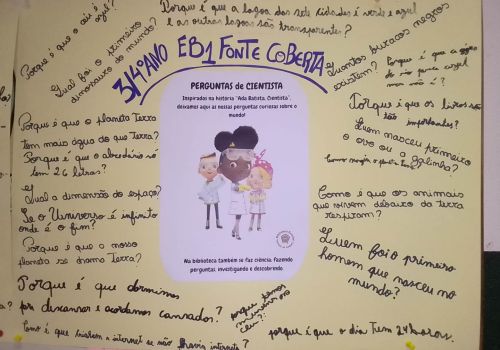 Porque é que a lagoa das sete cidades é verde e azul
e as outras lagoas são transparentes?
Porque é que o céu é
azul?
Qual foi o primeiro
dinossauro do mundo?
3/4ºANO EB1 FONTE COBERTA
Quantos buracos negros
existem?
Porque é que a água
do rio parece azul
mas não é?
Porque é que os livros são
tão importantes?
Porque é que o planeta Terra
tem mais água do que Terra?
Porque é que o abecedário só
tem 26 letras?
Quem nasceu primeiro
o ovo ou a galinha?
PERGUNTAS de CIENTISTA
Inspirados na história "Ada Batista, Cientista",
deixamos aqui as nossas perguntas curiosas sobre o
mundo!
Na biblioteca também se faz ciência: fazendo
perguntas, investigando e descobrindo.
Qual a dimensão do espaço?
Se o Universo é infinito
onde é o fim?
Como é que os animais
que vivem debaixo da terra
respiram?
Porque é que o nosso
planeta se chama Terra?
Quem foi o primeiro
homem que nasceu no
mundo?
Porque é que dormimos
pra descansar e acordamos cansados?
porque temos
Como é que criaram a internet se não havia internet?
porque é que o dia tem 24 horas.